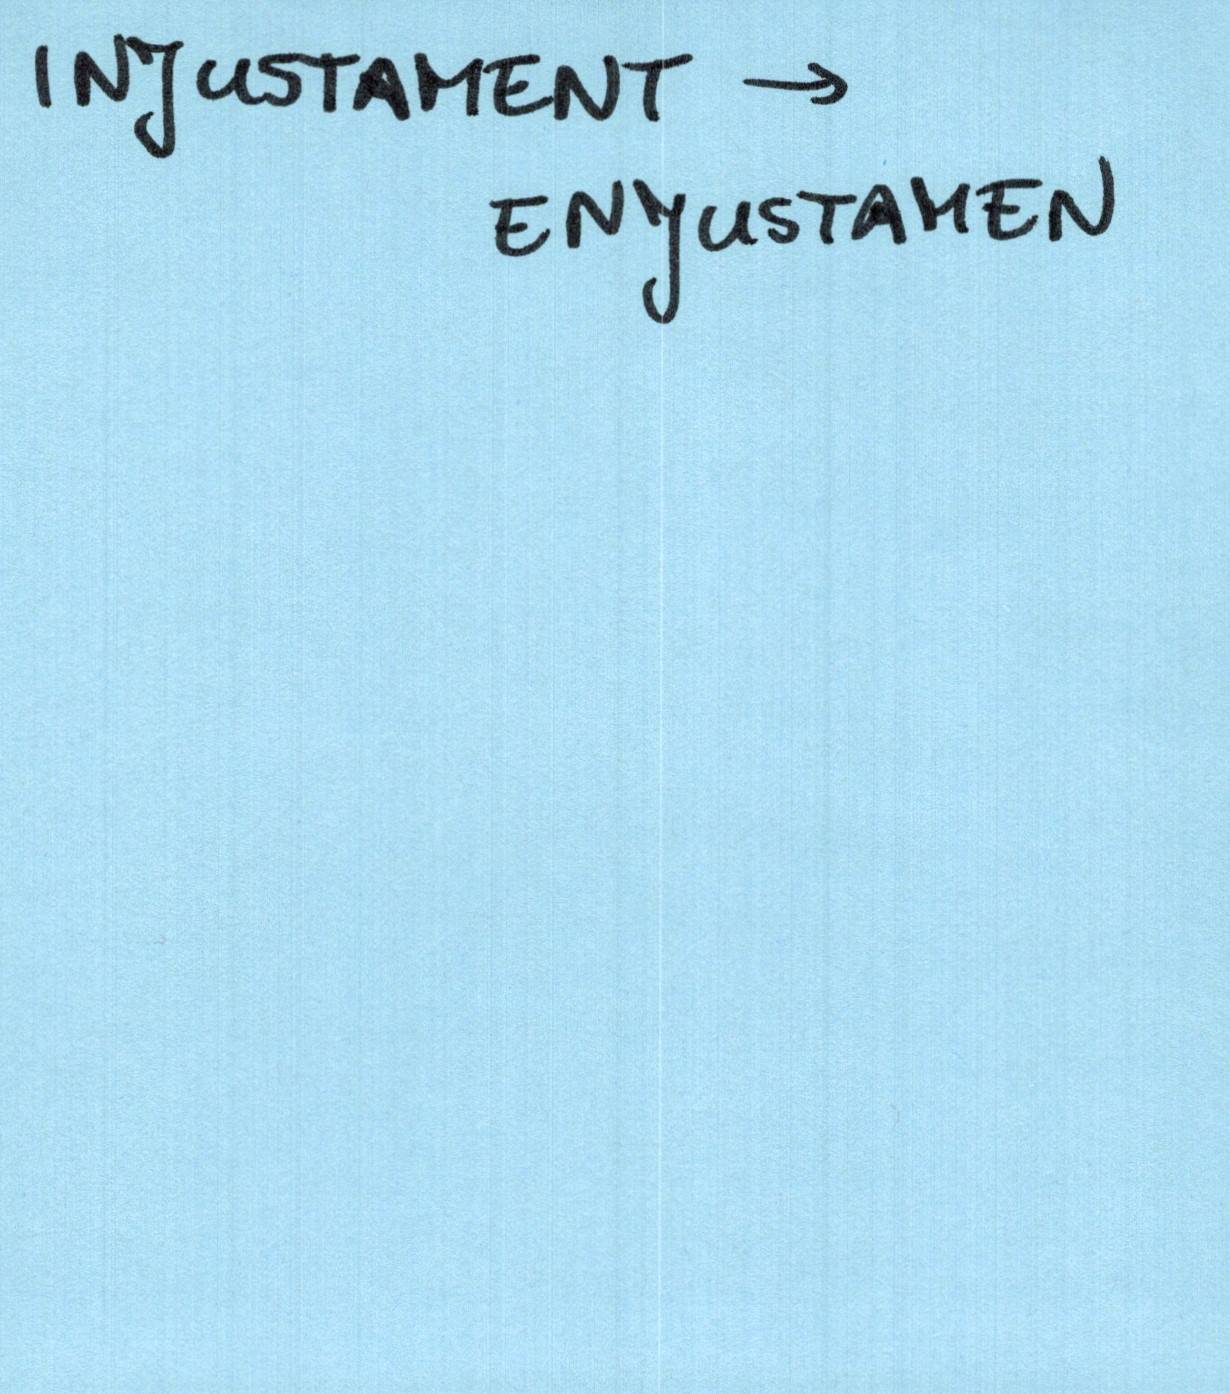 INJUSTAMENT →
ENYUSTAMEN